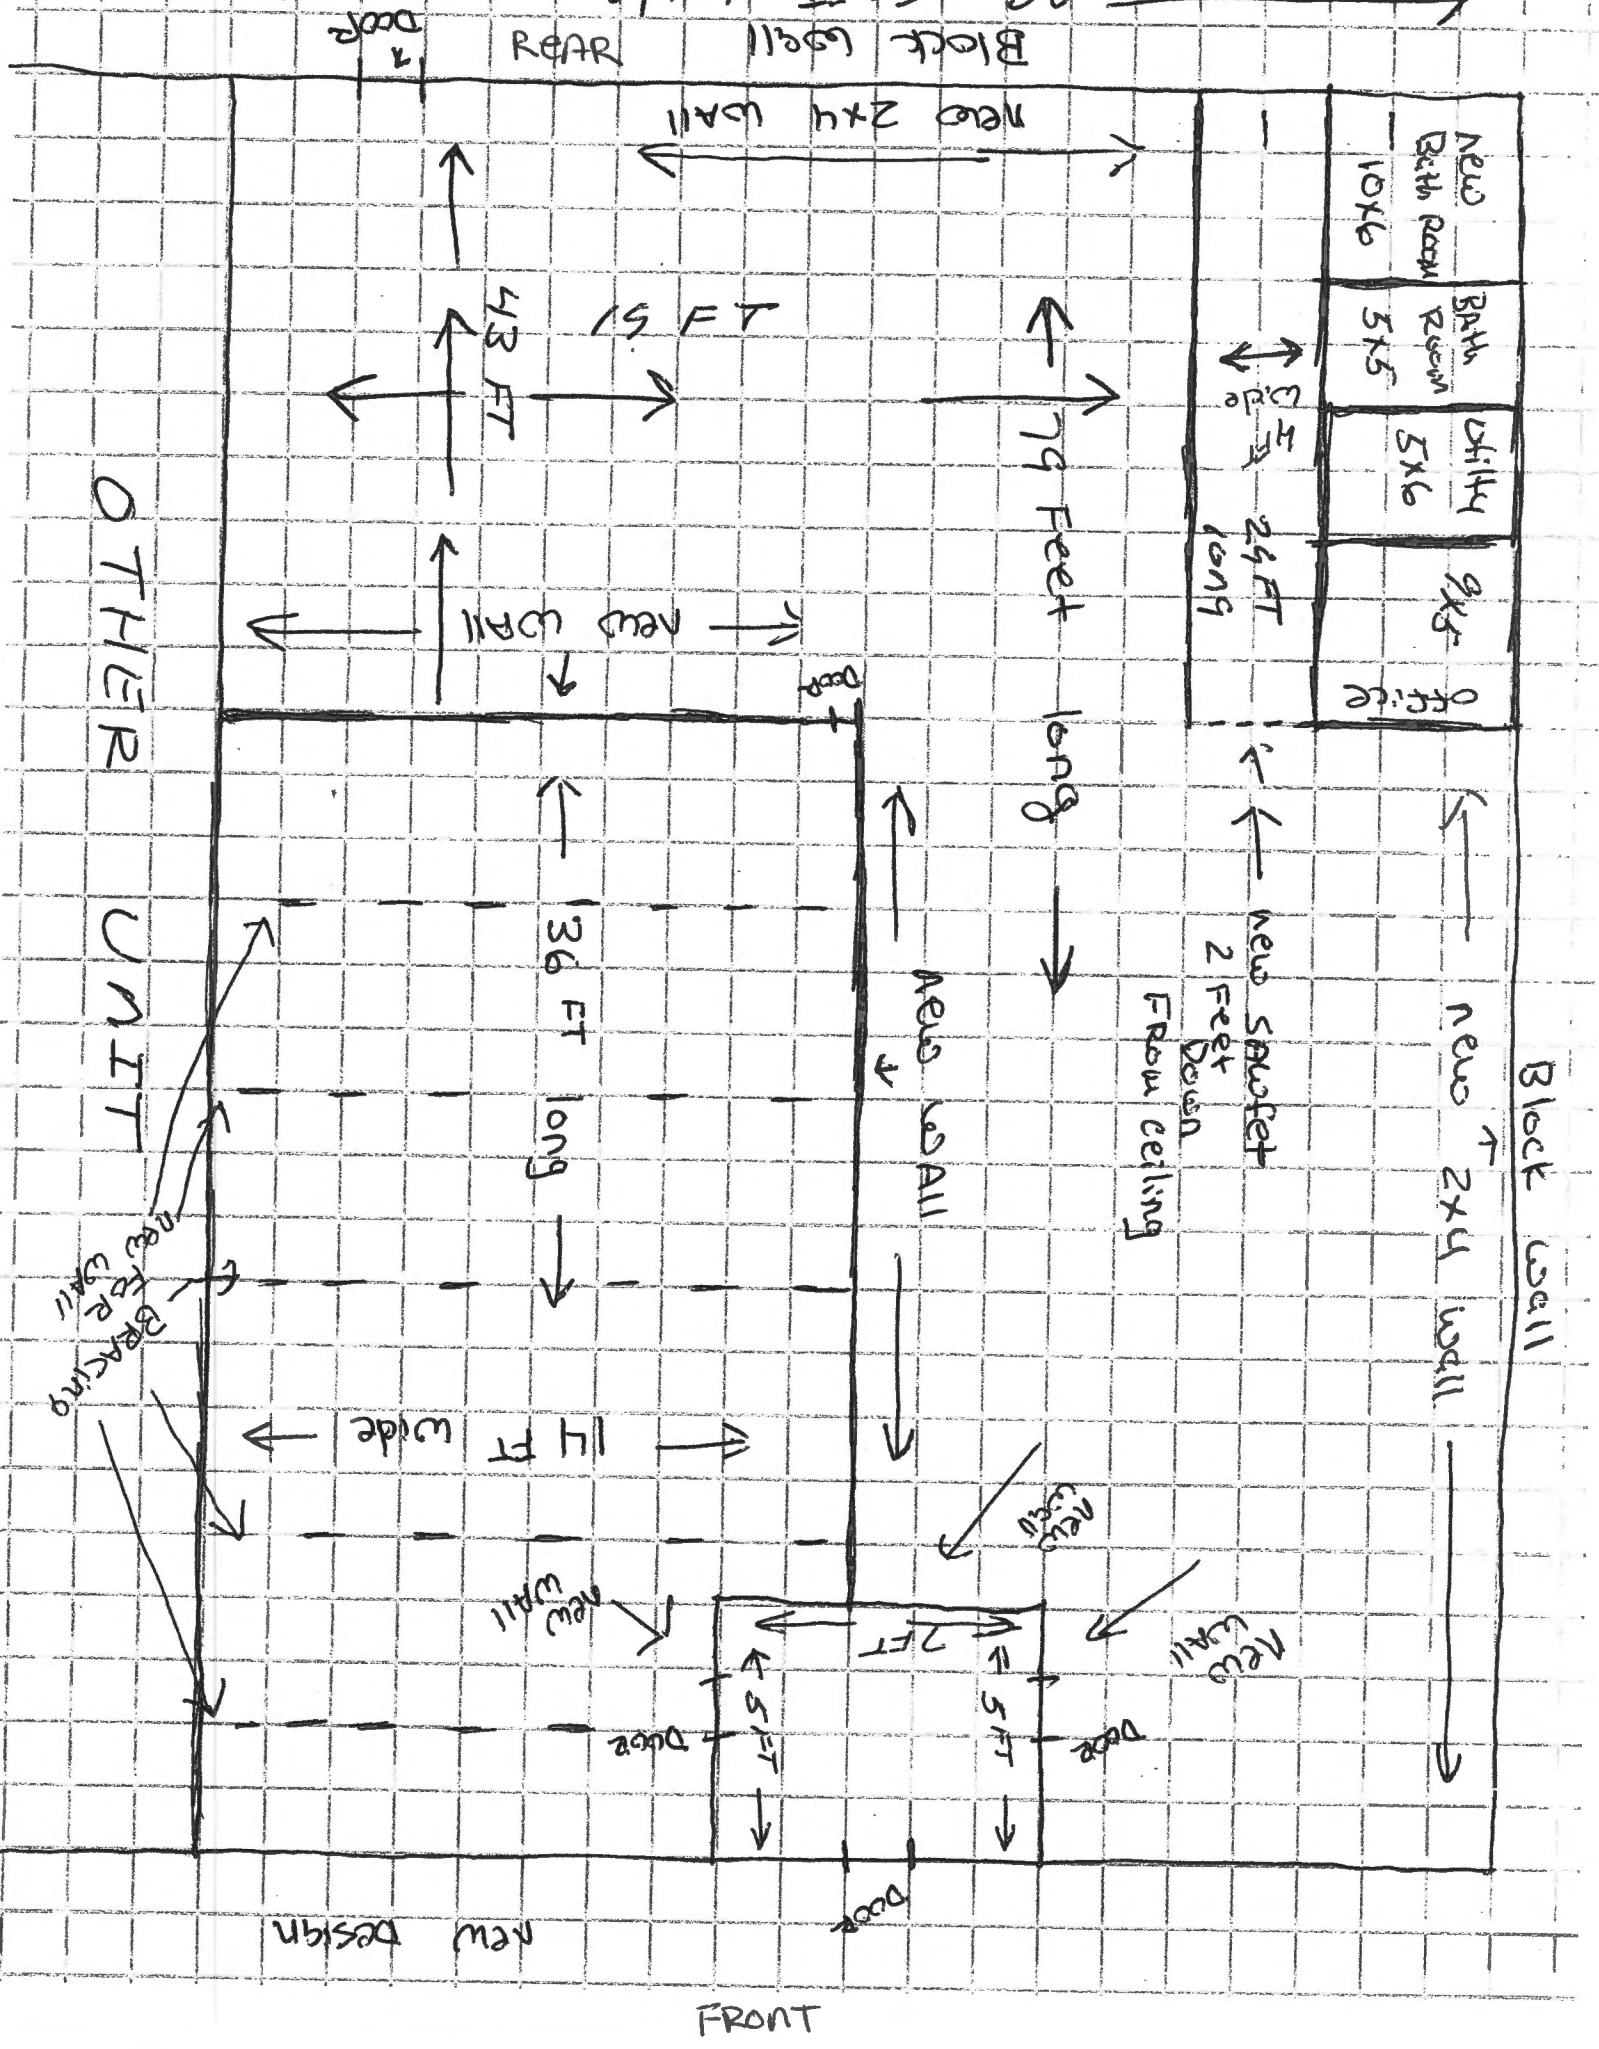 Block wall
REAR
DOOR
new 2x4 wall
new
Bath Room
10x6
BAth
Room
5x5
Utility
5x6
9x5
office
4 FT
wide
29 FT
long
43 FT
15 FT
79 Feet long
new wall
Door
OTHER UNIT
36 FT long
new wall
new SAWfet
2 Feet
Down
From ceiling
new 2x4 wall
Block wall
new BRACing
FOR
wall
14 FT wide
new
wall
new
wall
new
wall
7 FT
5 FT
5 FT
DOOR
DOOR
DOOR
new Design
FRONT